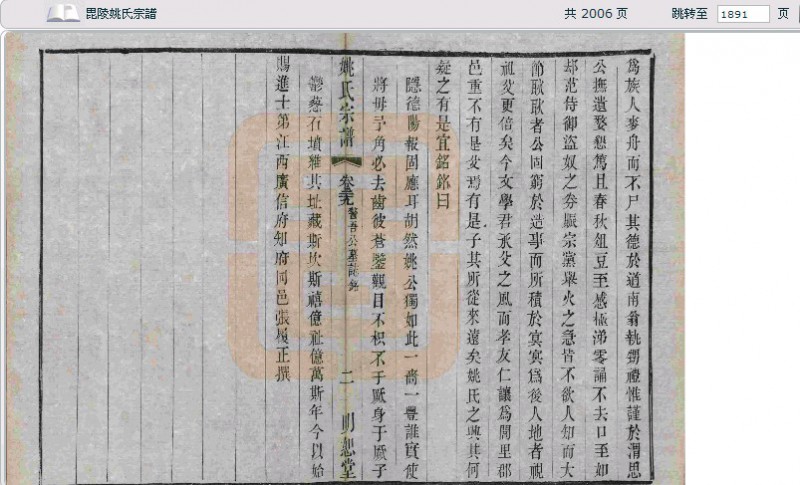 毘陵姚氏宗譜
共 2006 页
跳转至 1891 页
爲族人麥舟而不尸其德於道南翁執甥禮惟謹於渭思
公撫遺嫠戀篤且春秋俎豆至感極涕零誦不去口至如
却范侍御盜奴之劵賑宗黨舉火之急皆不欲人知而大
節耿耿者公固窮於造事而所積於冥冥爲後人地者視
祖父更倍矣今文學君承父之風而孝友仁讓爲閭里郡
邑重不有是父焉有是子其所從來遠矣姚氏之興其何
疑之有是宜銘銘曰
隱德陽報固應耳胡然姚公獨如此一嗇一豐誰實使
將毋予角必去齒彼蒼鑒觀日不枳不于厥身于厥子
鬱葱石墳雜其址藏斯坎斯禧億祉億萬斯年今以始
賜進士第江西廣信府知府同邑張履正撰
姚氏宗譜
卷三九
警吾公墓誌銘
二
明恕堂